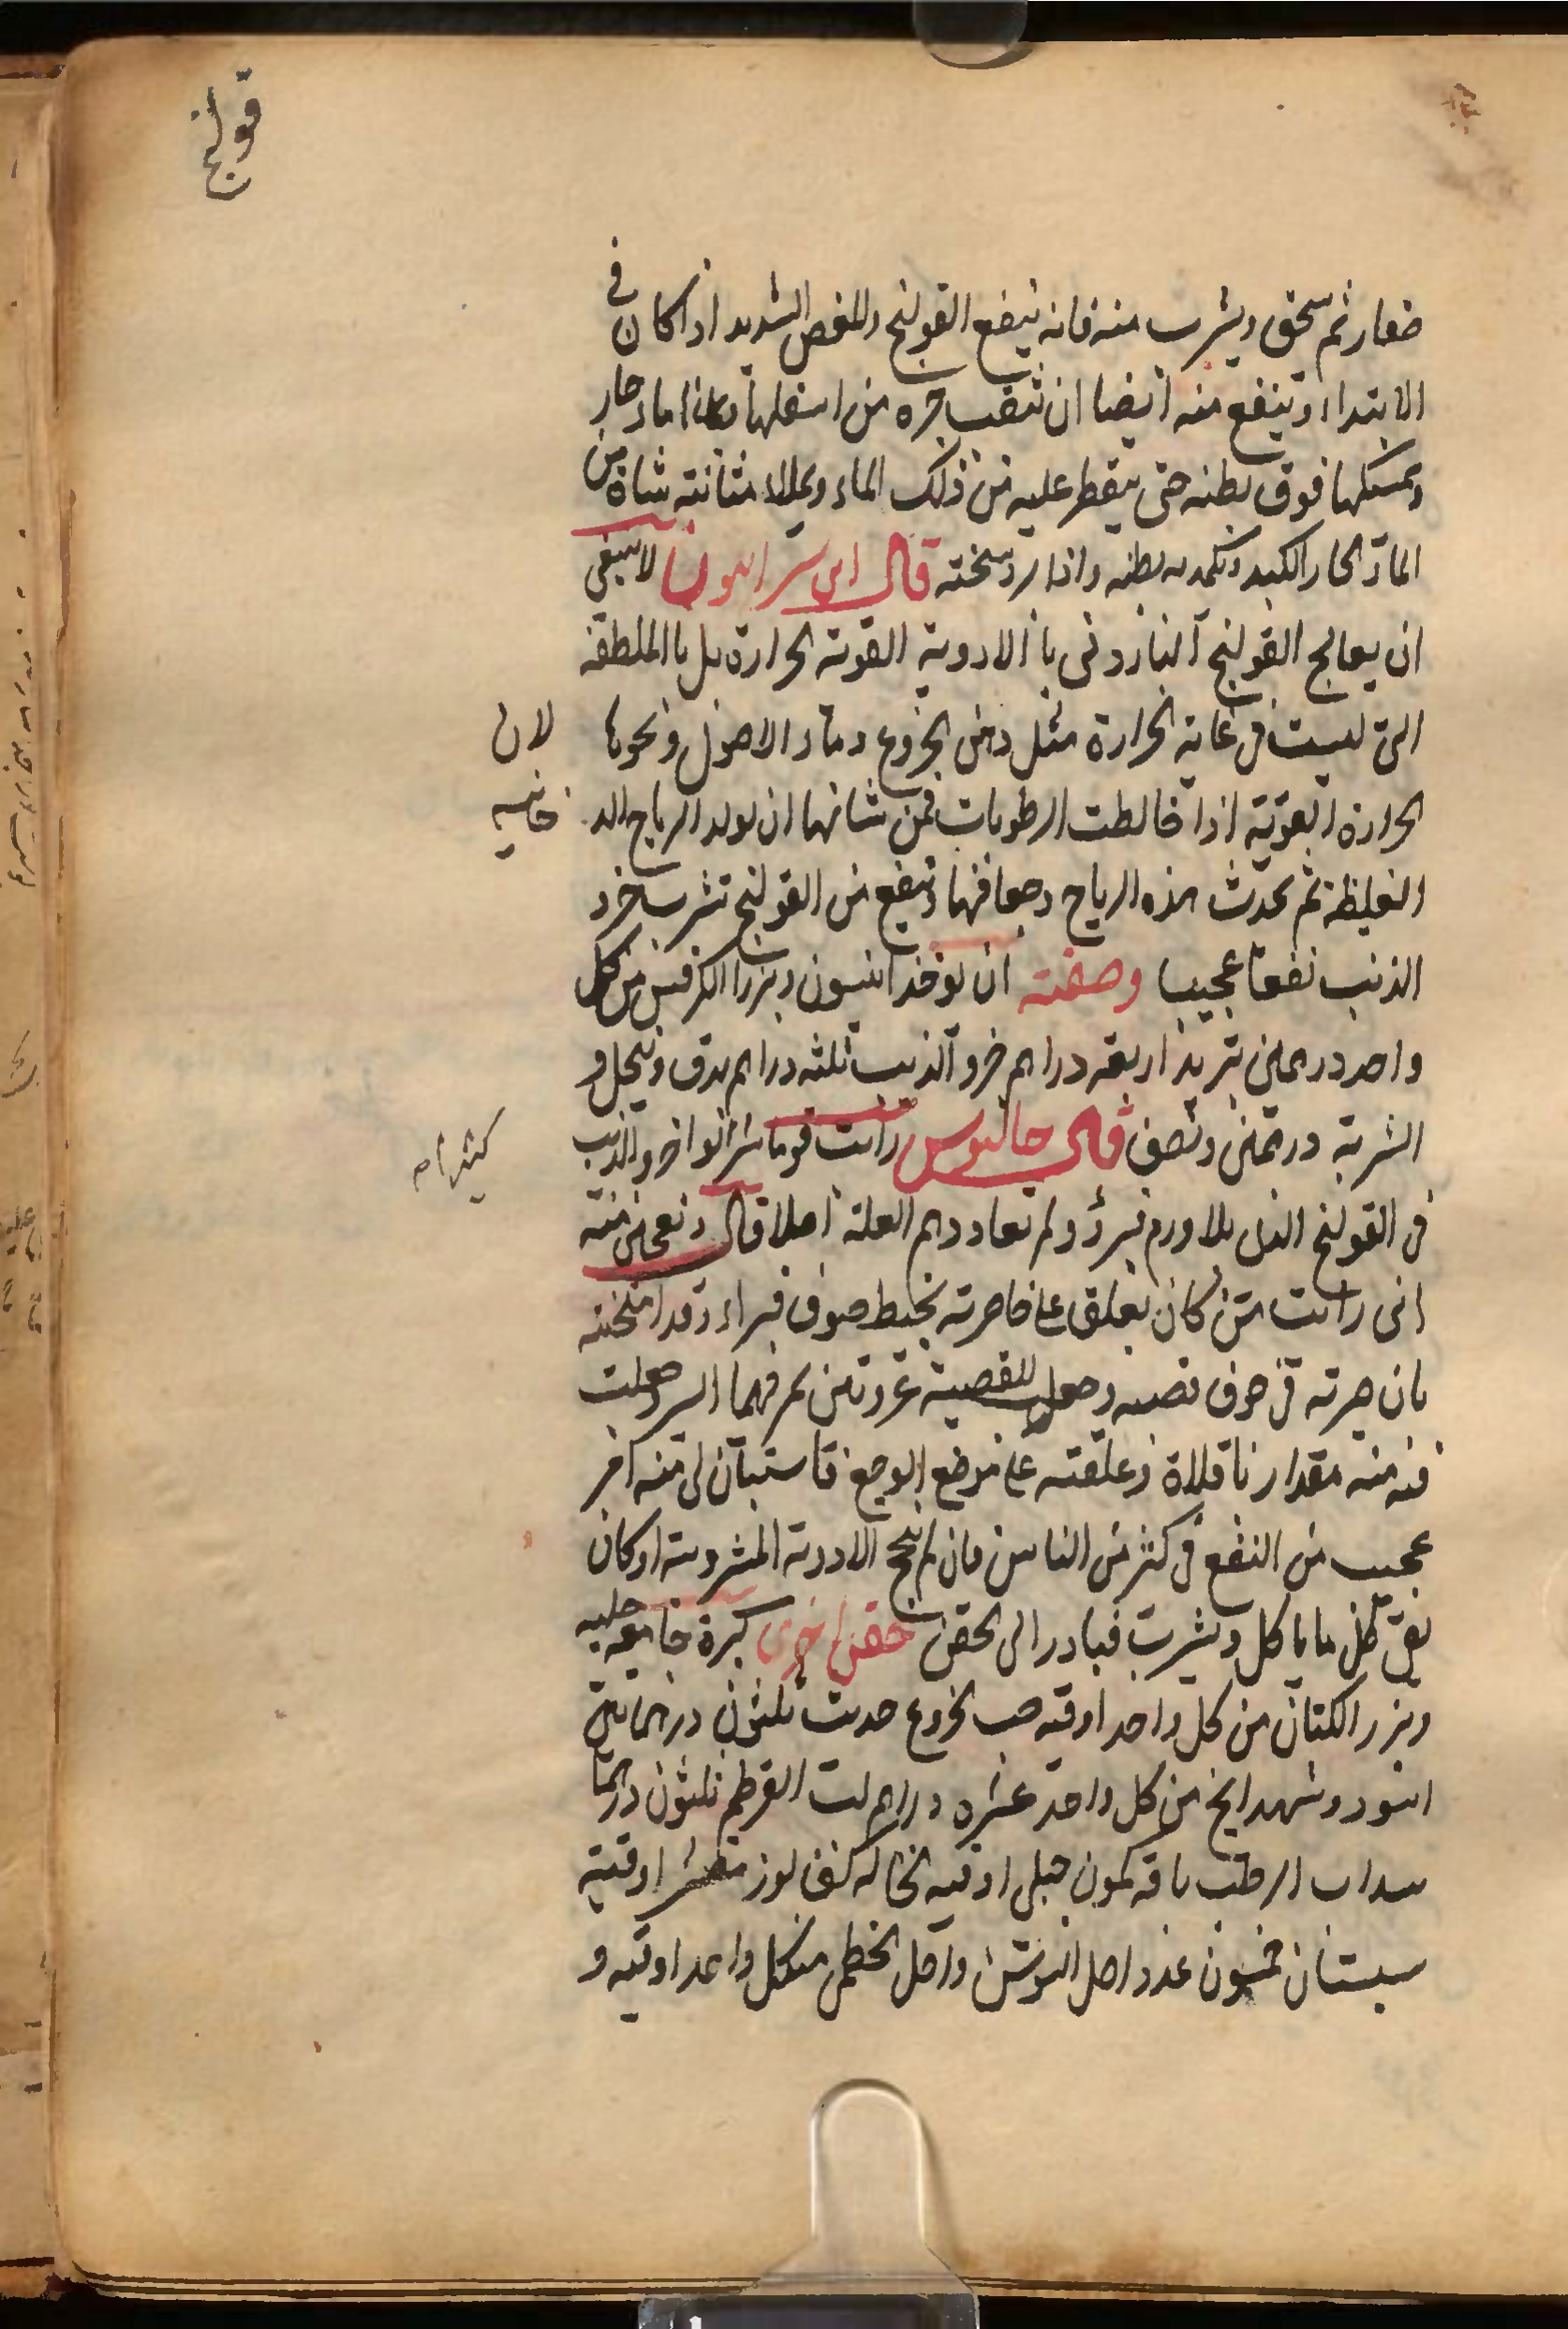 قولنج
صغار ثم يسحق ويشرب منه فانه ينفع القولنج والمغص الشديد اذا كان في
الابتداء وينفع منه ايضا ان تثقب جره من اسفلها ماء حار
ويمسكها فوق بطنه حتى يقطر عليه من ذلك الماء ويملاء مثانته شاة من
الماء الحار الكبد وتكمد به بطنه واذا برد سخنته قال ابن سرابيون لا ينبغي
ان يعالج القولنج البارد في با الادوية القوية الحرارة بل با الملطفة
التي ليست في غاية الحرارة مثل دهن الخروع وماء الاصول ونحوها لان
الحرارة القوية اذا خالطت الرطوبات فمن شانها ان تولد الرياح
الغليظة ثم تحدث هذه الرياح وجعا فيها وينفع من القولنج تشرب خرو
الذئب نفعا عجيبا وصفته ان يوخذ انيسون وبزر الكرفس من كل
واحد درهمين تربد اربعة دراهم خرو الذيب ثلثه دراهم يدق وينخل و
الشربة درهمين ونصف قال جالينوس رايت قوما شربوا خرو الذيب
كثيرا
في القولنج الذي بلا ورم فبرؤ ولم تعاودهم العلة اصلا قال
اني رايت من كان يعلق على خاصرته بخيط صوف فبراء وقد امتحنته
بان صيرته في جوف قصبه وجعل للقصبة عروتين السير وجعلت
فيه منه مقدار باقلاة وعلقته على موضع الوجع فاستبان لي منه اثر
عجيب من النفع في كثير من الناس فان لم تنجح الادوية المشروبة او كان
يقي كل ما ياكل ويشرب فبادر الى الحقن حقن اخرى كبيرة جامعة حلبه
وبزر الكتان من كل واحد اوقيه حب الخروع حديث ثلثون درهما تين
اسود وشهدانج من كل واحد عشره دراهم لب القرطم ثلثون درهما
سداب الرطب باقه كمون جبلي اوقيه نخاله كف لوز مقشر اوقية
سبستان خمسون عدد اصل السوسن واصل الخطمى من كل واحد اوقيه و